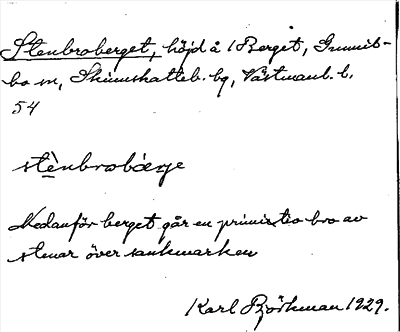 Stenbroberget, höjd å 1 Berget, Gunnils-
bo sn, Skinnskatteb. bg, Västmanl. l.
54
stènbrobárje
Nedanför berget går en primitiv bro av
stenar över sankmarken
Karl Björkman 1929.